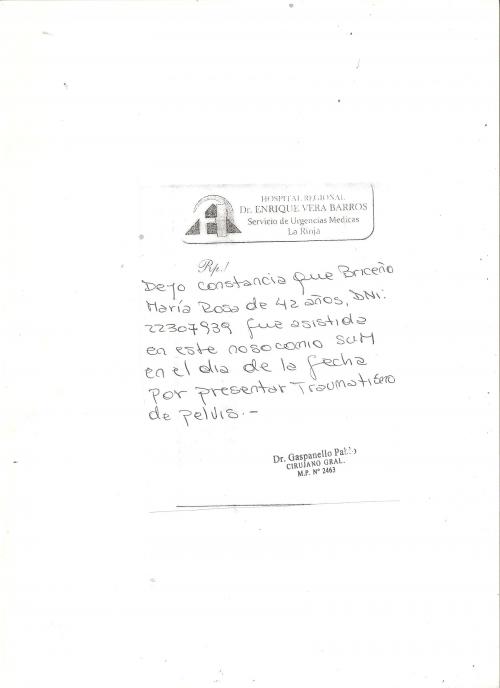 HOSPITAL REGIONAL
Dr. ENRIQUE VERA BARROS
Servicio de Urgencias Medicas
La Rioja
Rp./
Dejo constancia que Briceño
María Rosa de 42 años, DNI:
22307939 fue asistida
en este nosocomio SUM
en el día de la fecha
por presentar
de pelvis.-
Dr. Gaspanello
CIRUJANO GRAL.
M.P. N° 2463